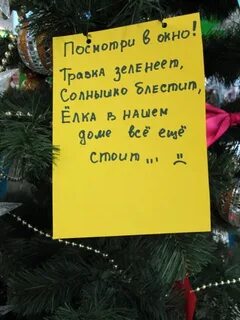 Посмотри в окно!
Травка зеленеет,
Солнышко блестит,
Ёлка в нашем
доме всё ещё
стоит,,, :(